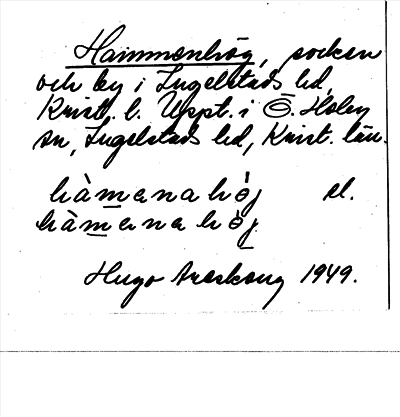 Hammenhög, socken
och by i Ingelstads hd,
Krist. l. Uppt. i Ö. Hoby
sn, Ingelstads hd, Krist. län.
hàmenahög el.
hàmenahög
Hugo Areskoug 1949.